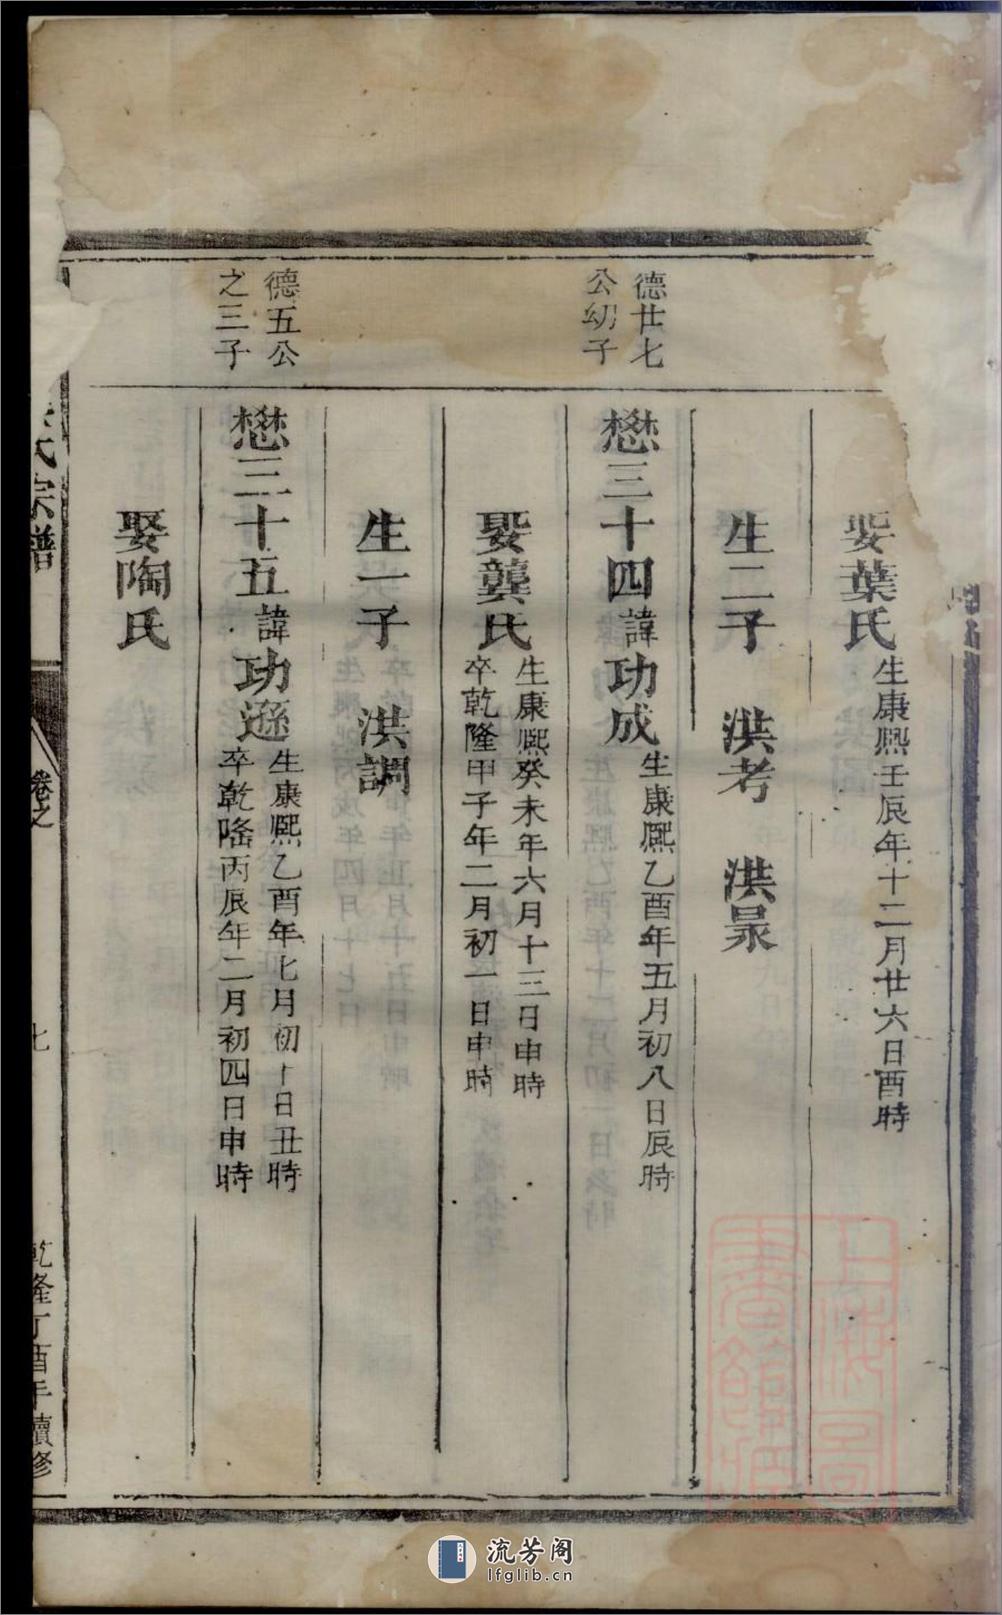 娶葉氏生康熙壬辰年十二月廿六日酉時
生二子 洪考 洪杲
德廿七
公幼子
懋三十四諱功成生康熙乙酉年五月初八日辰時
娶龔氏生康熙癸未年六月十三日申時
卒乾隆甲子年二月初一日申時
生一子 洪調
德五公
之三子
懋三十五諱功遜生康熙乙酉年七月初十日丑時
卒乾隆丙辰年二月初四日申時
娶陶氏
氏宗譜
卷之
七
乾隆丁酉年續修
上海圖
書館藏
流芳阁
lfglib.cn